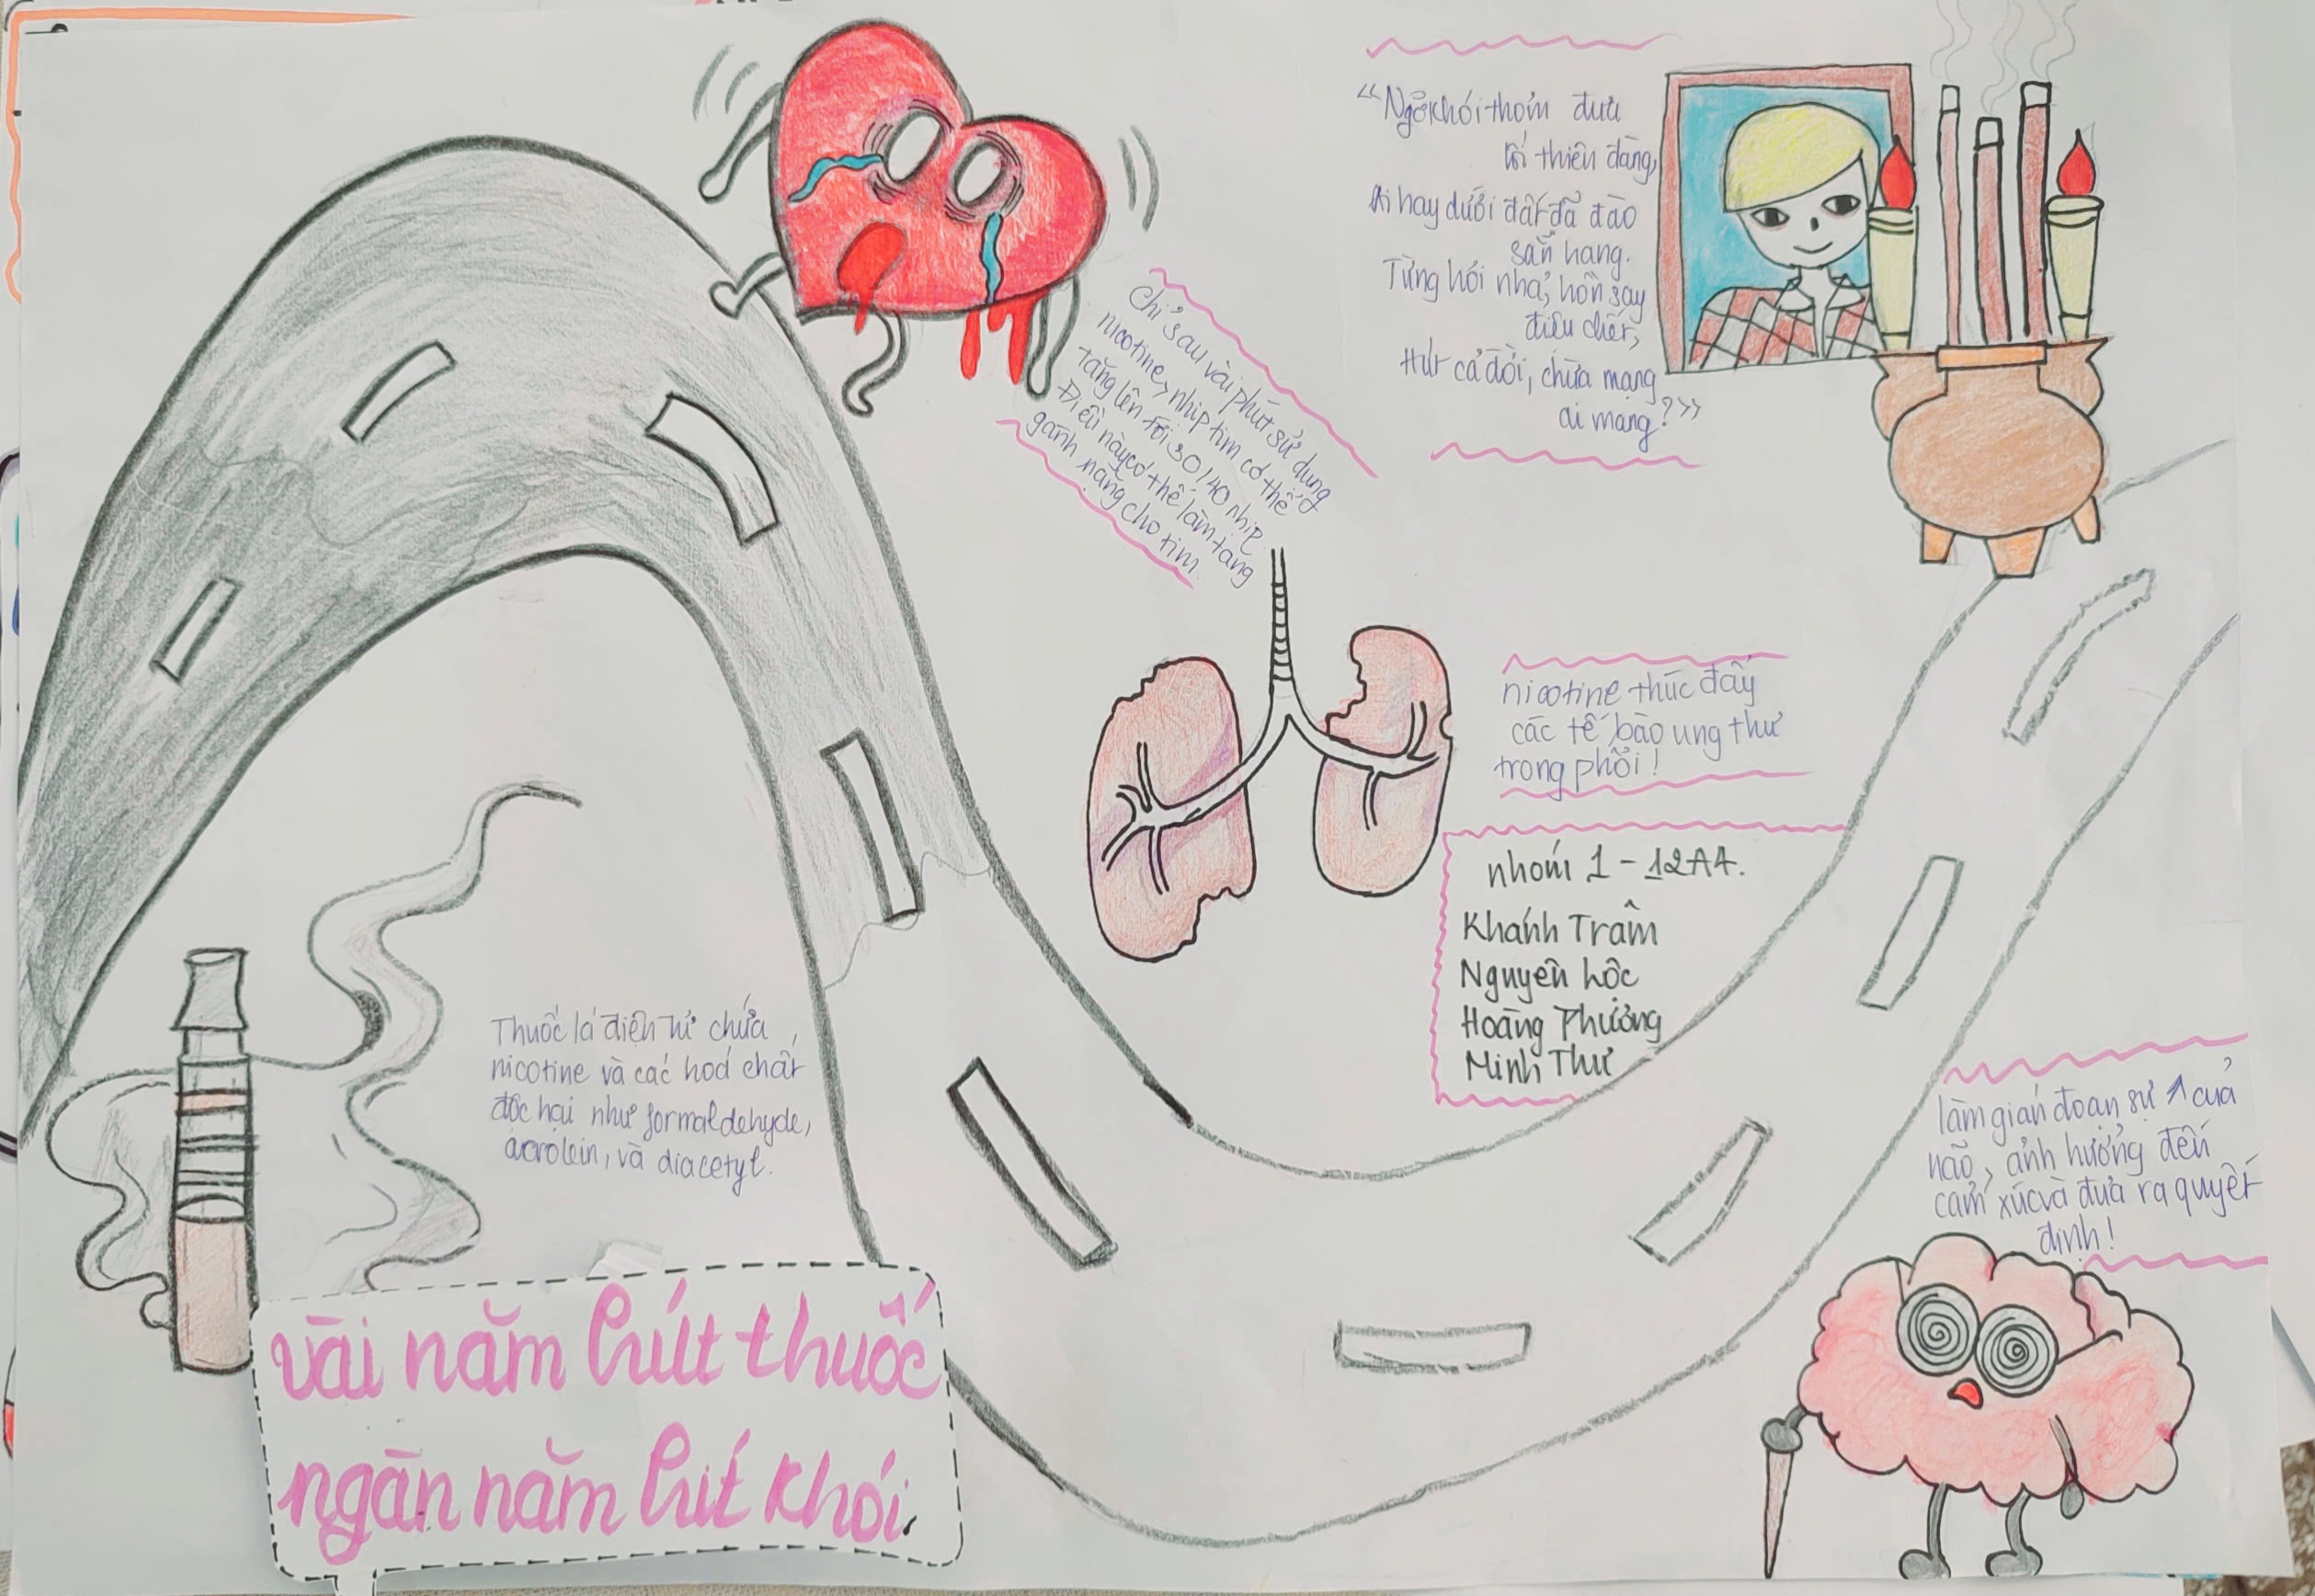 "Ngỡ khói thơm đưa
lối thiên đàng,
Ai hay dưới đất đã đào
sẵn hang.
Từng hơi nhả, hồn say
điếu chết,
Hút cả đời, chừa mạng
ai mạng?"
Chỉ sau vài phút sử dụng
nicotine, nhịp tim có thể
tăng lên tới 30/40 nhịp.
Điều này có thể làm tăng
gánh nặng cho tim.
nicotine thúc đẩy
các tế bào ung thư
trong phổi!
nhóm 1 - 12A4.
Khánh Trâm
Nguyên Lộc
Hoàng Phương
Minh Thư
Thuốc lá điện tử chứa
nicotine và các hoá chất
độc hại như formaldehyde,
acrolein, và diacetyl.
làm gián đoạn sự ↗ của
não, ảnh hưởng đến
cảm xúc và đưa ra quyết
định!
vài năm hút thuốc
ngàn năm hít khói.